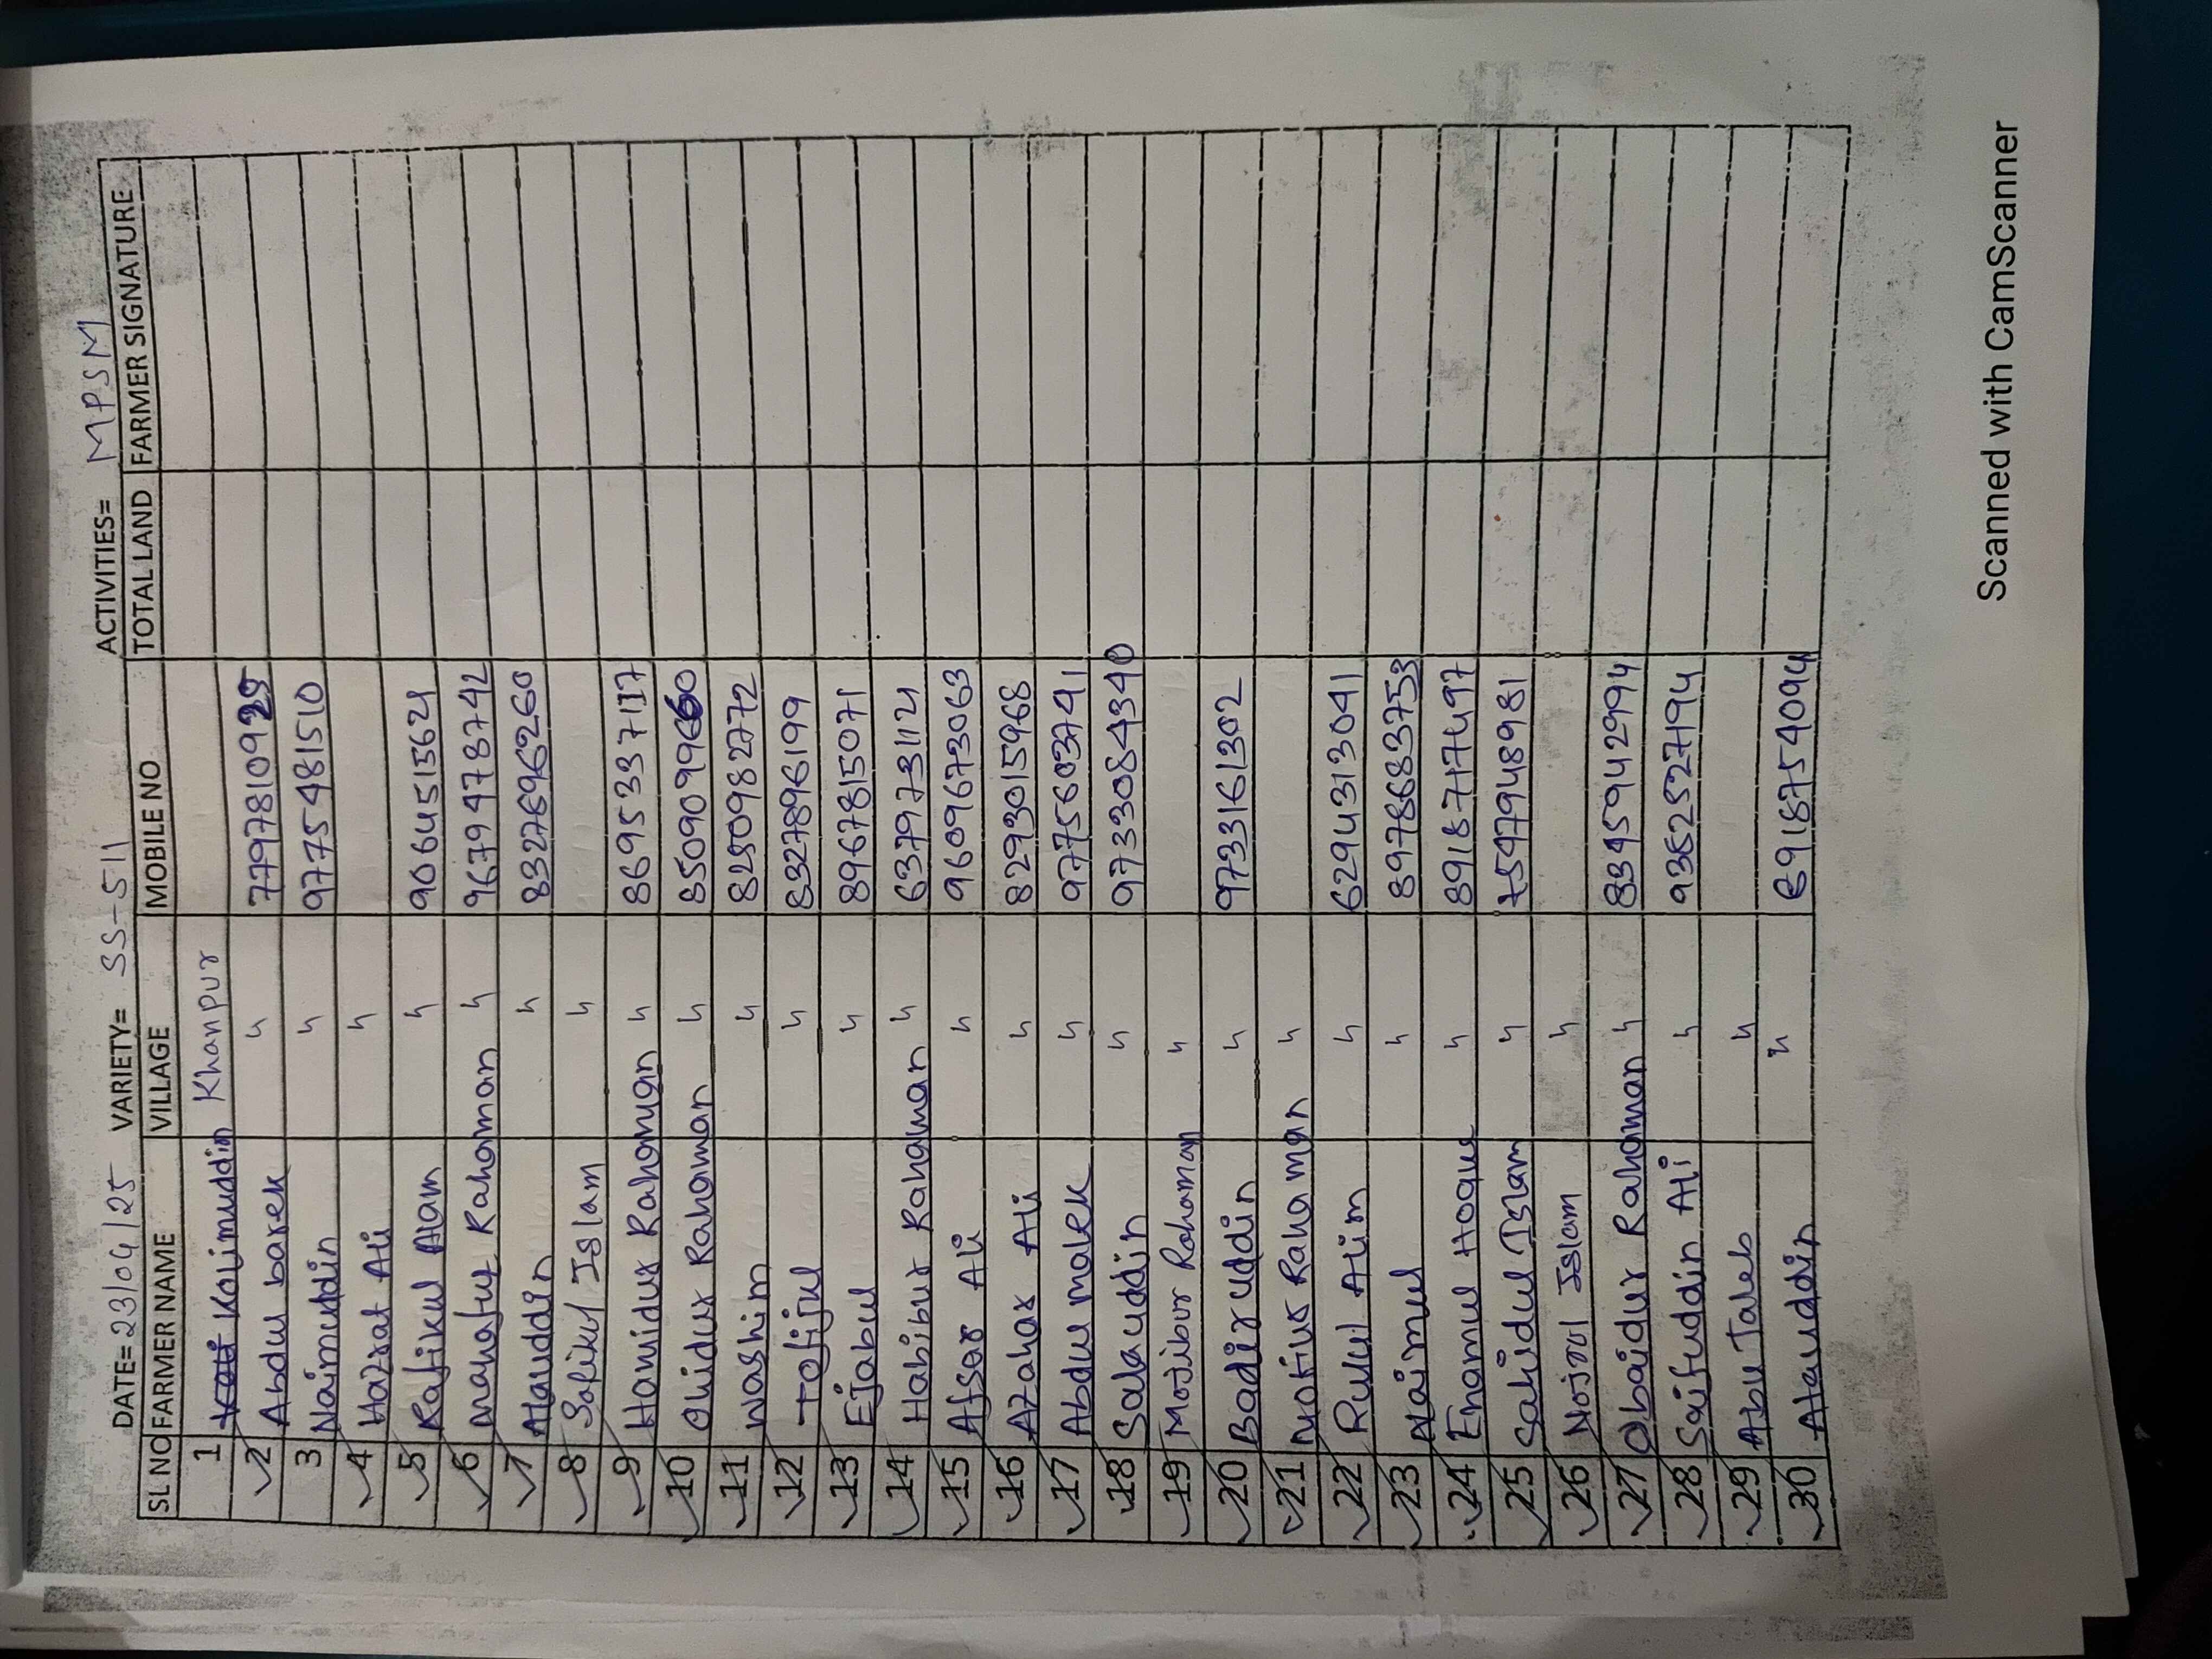 DATE= 23/04/25 VARIETY= SS-511 ACTIVITIES= MPSM
SL NO FARMER NAME VILLAGE MOBILE NO TOTAL LAND FARMER SIGNATURE
1 Kajimuddin Khanpur
2 Abdul barek " 7797810925
3 Naimuddin " 9775481510
4 Hazrat Ali "
5 Rafikul Alam " 9064515621
6 Manafur Rahaman " 9679478742
7 Alauddin " 8327896260
8 Safikul Islam "
9 Hamidur Rahaman " 8695337117
10 Olidur Rahaman " 8509099660
11 Washim " 8250982772
12 Tofijul " 8327896199
13 Ejabul " 8967815071
14 Habibur Rahaman " 6379731121
15 Afsar Ali " 9609673063
16 Azahar Ali " 8293015968
17 Abdul malek " 9775603741
18 Salauddin " 9733084340
19 Mojibur Rahaman "
20 Badiruddin " 9733161302
21 Motiur Rahaman "
22 Rulul Alim " 6294313041
23 Naimul " 8978683753
24 Enamul Hoque " 8918717497
25 Sahidul Islam " 7547948981
26 Nojrul Islam "
27 Obaidur Rahaman " 8345942994
28 Saifuddin Ali " 9382527194
29 Abu Taleb "
30 Alauddin " 8918754094
Scanned with CamScanner